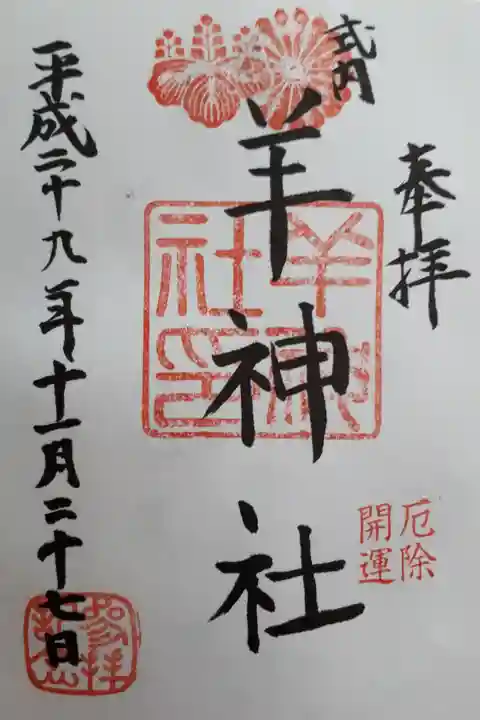 奉拝
厄除
開運
式内
羊神社
羊神社印
平成二十九年十一月二十七日